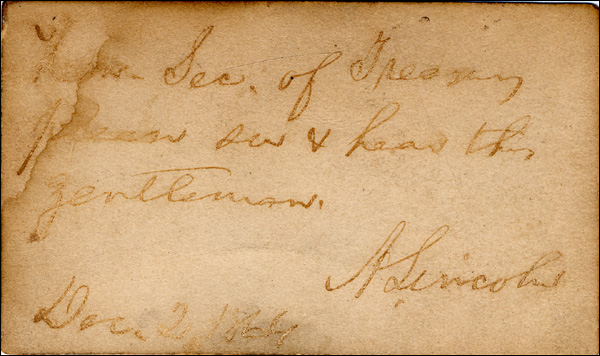 Hon. Sec. of Treasury
please see & hear this
gentleman.
A. Lincoln
Dec. 2, 1864